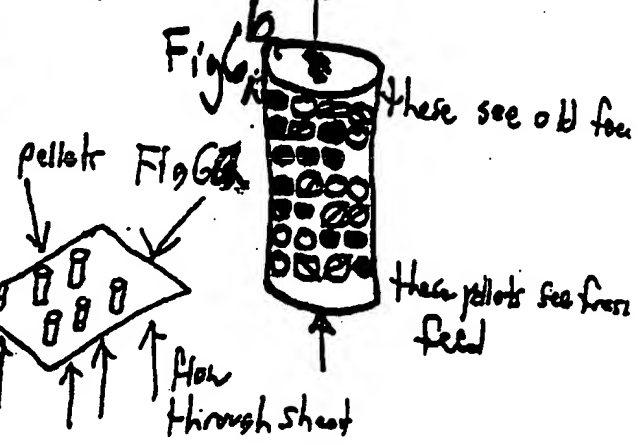 Fig 6
these see old feed
pellets
Fig 6
these pellets see fresh
feed
flow
through sheet